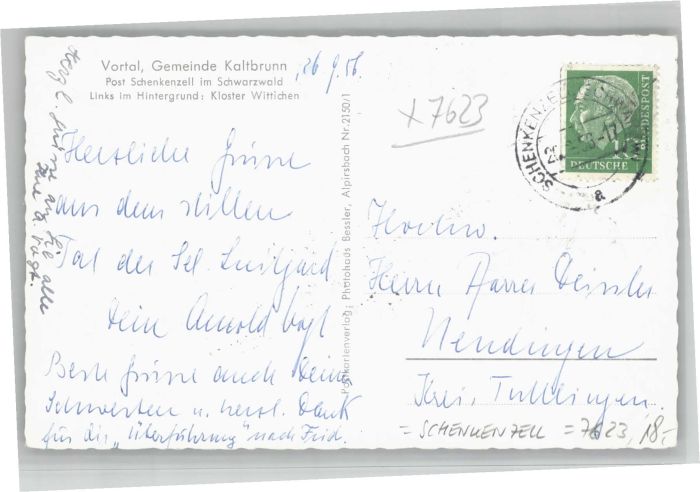 Vortal, Gemeinde Kaltbrunn
Post Schenkenzell im Schwarzwald
Links im Hintergrund: Kloster Wittichen
26.9.56.
Herzliche Grüsse
aus dem stillen
Tal der Sel. Luitgard
Dein Arnold Vogt
Beste Grüsse auch Deinen
Schwestern u. herzl. Dank
für die „Überführung" nach Frid.
Herzl. Grüsse an Sie alle
Vogt.
Postkartenverlag: Photohaus Bessler, Alpirsbach Nr. 2150/1
x 7623
SCHENKENZELL
DEUTSCHE
BUNDESPOST
a
Hochw.
Herrn Pfarrer Deissler
Nendingen
Kreis Tuttlingen.
= SCHENKENZELL = 7623, 18.-